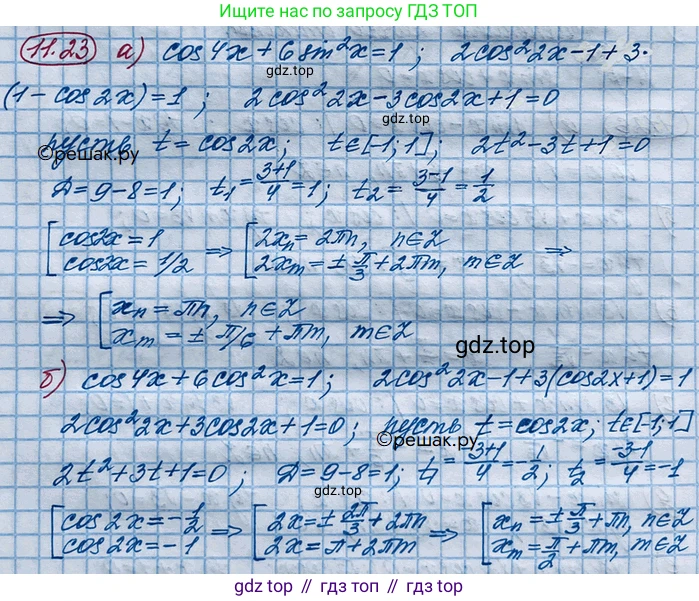 Решебники по запросу ГДЗ ТОП
11.23 а) cos4x + 6sin²x = 1 ; 2cos²2x - 1 + 3·
gdz.top
(1 - cos2x) = 1 ; 2cos²2x - 3cos2x + 1 = 0
gdz.top
пусть t = cos2x ; t∈[-1;1] ; 2t² - 3t + 1 = 0
©решак.ру
Д = 9 - 8 = 1 ; t₁ = (3+1)/4 = 1 ; t₂ = (3-1)/4 = 1/2
©решак.ру
[ cos2x = 1 ⇒ [ 2xₙ = 2πn, n∈Z
cos2x = 1/2 2xₘ = ± π/3 + 2πm, m∈Z ⇒
⇒ [ xₙ = πn, n∈Z
xₘ = ± π/6 + πm, m∈Z
gdz.top
б) cos4x + 6cos²x = 1 ; 2cos²2x - 1 + 3(cos2x + 1) = 1
gdz.top
2cos²2x + 3cos2x + 1 = 0 ; пусть t = cos2x ; t∈[-1;1]
©решак.ру
2t² + 3t + 1 = 0 ; Д = 9 - 8 = 1 ; t₁ = -3+1/4 = -1/2 ; t₂ = -3-1/4 = -1
gdz.top
[ cos2x = -1/2 ⇒ [ 2x = ± 2π/3 + 2πn ⇒ [ xₙ = ± π/3 + πn, n∈Z
cos2x = -1 2x = π + 2πm xₘ = π/2 + πm, m∈Z
gdz.top // gdz.top // gdz.top